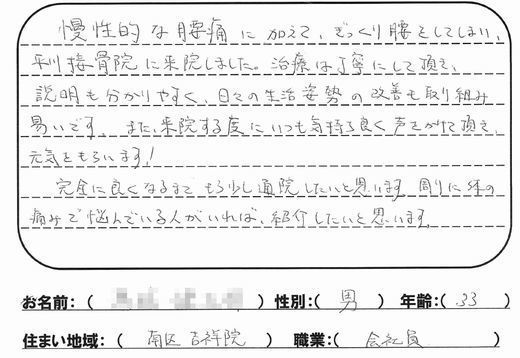 慢性的な腰痛に加えて、ぎっくり腰をしてしまい、
来院しました。治療は丁寧にして頂き、
説明も分かりやすく、日々の生活姿勢の改善も取り組み
易いです。また、来院する度にいつも気持ち良く声をかけて頂き
元気をもらいます！
完全に良くなるまでもう少し通院したいと思います。周りに体の
痛みで悩んでいる人がいれば、紹介したいと思います。
お名前：（ ）性別：（ 男 ）年齢：（ 33 ）
住まい地域：（ 南区 吉祥院 ）職業：（ 会社員 ）